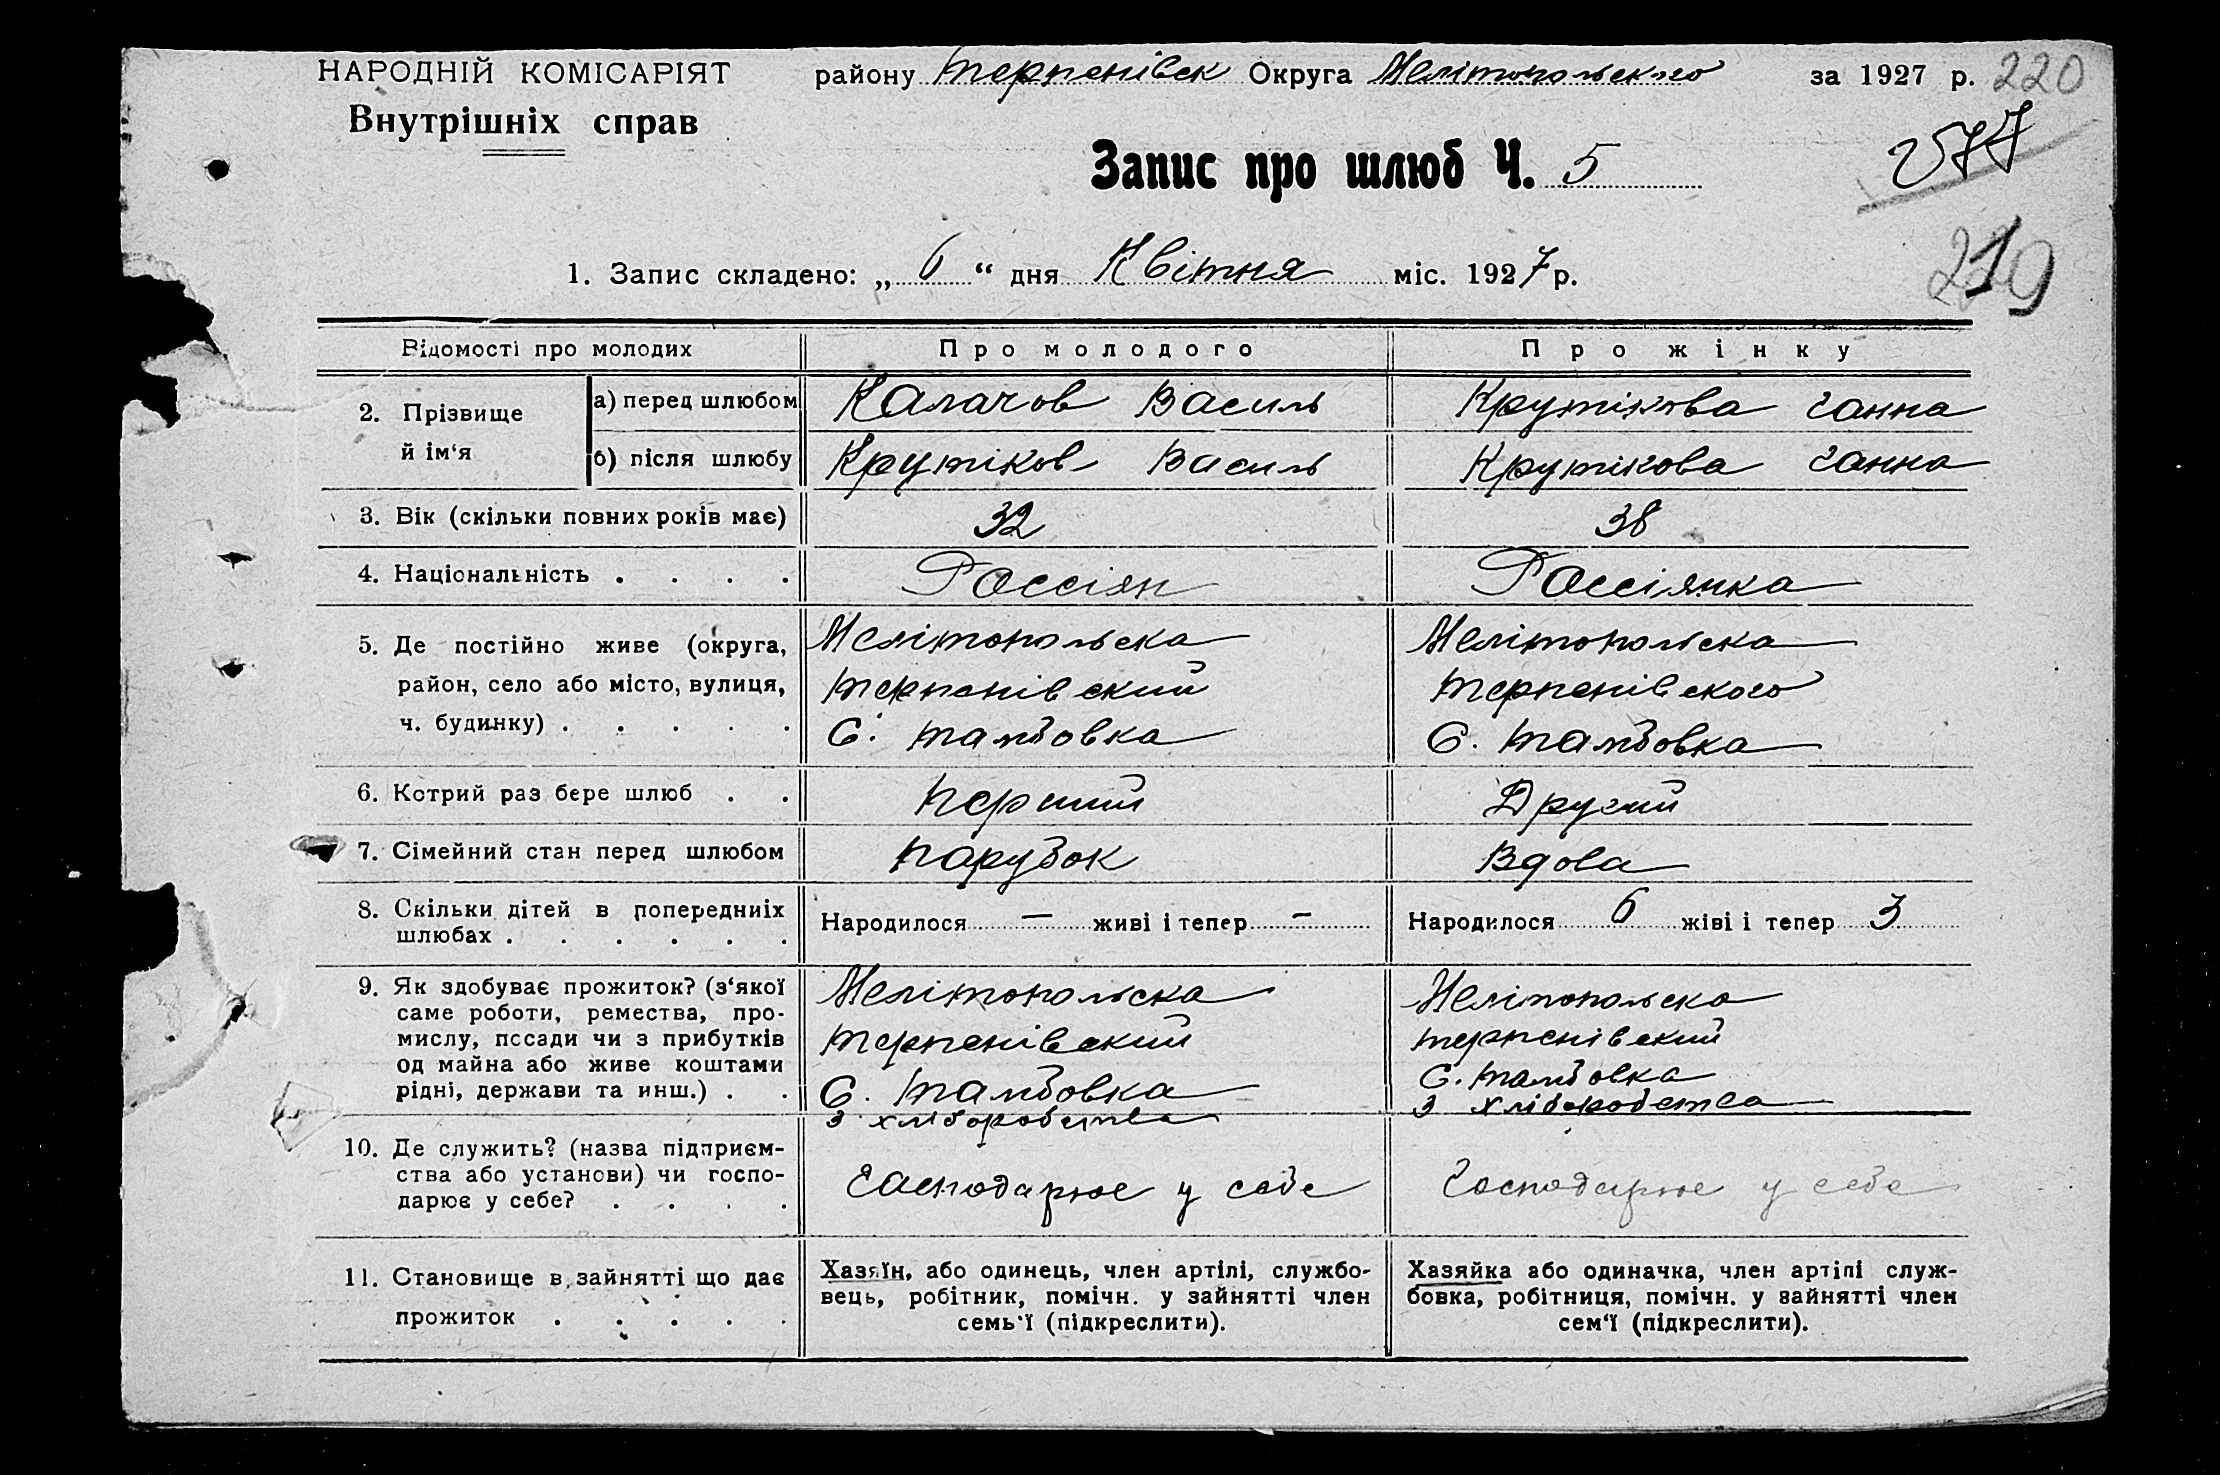 НАРОДНІЙ КОМІСАРІЯТ району Терпенівск Округа Мелітопольского за 1927 р. 220
Внутрішніх справ
577
Запис про шлюб Ч. 5
219
1. Запис складено: „ 6 “ дня Квітня міс. 1927 р.
Відомості про молодих Про молодого Про жінку
2. Прізвище й ім‘я
а) перед шлюбом Калачов Василь Крутікова Ганна
б) після шлюбу Крутіков Василь Крутікова Ганна
3. Вік (скільки повних років має) 32 38
4. Національність . . . . Россіян Россіянка
5. Де постійно живе (округа,
район, село або місто, вулиця,
ч. будинку) . . . . .
Мелітопольска
Терпенівский
С. Тамбовка
Мелітопольска
Терпенівского
С. Тамбовка
6. Котрий раз бере шлюб . . Перший Другий
7. Сімейний стан перед шлюбом Парубок Вдова
8. Скільки дітей в попередниіх
шлюбах . . . . . .
Народилося — живі і тепер –
Народилося 6 жіві і тепер 3
9. Як здобуває прожиток? (з‘якої
саме роботи, ремества, про-
мислу, посади чи з прибутків
од майна або живе коштами
рідні, держави та инш.) . .
Мелітопольска
Терпенівский
С. Тамбовка
З хліборобства
Мелітопольска
Терпенівский
С. Тамбовка
З хліборобства
10. Де служить? (назва підприєм-
ства або установи) чи госпо-
дарює у себе? . . . .
Гасподарює у себе
Господарює у себе
11. Становище в зайнятті що дає
прожиток . . . . .
Хазяїн, або одинець, член артілі, службо-
вець, робітник, помічн. у зайнятті член
семь'ї (підкреслити).
Хазяйка або одиначка, член артілі служ-
бовка, робітниця, помічн. у зайнятті член
сем‘ї (підкреслити).